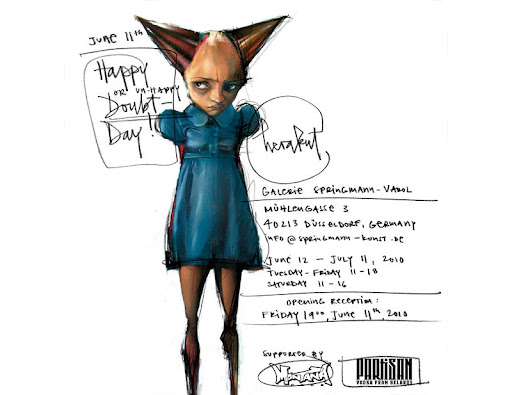 JUNE 11th
Happy
OR UN-HAPPY
Doubt-
Day!!
herakut,
GALERIE SPRINGMANN-VAROL
MÜHLENGASSE 3
40213 DÜSSELDORF, GERMANY
INFO@SPRINGMANN-KUNST.DE
JUNE 12 — JULY 11, 2010
TUESDAY-FRIDAY 11-18
SATURDAY 11-16
OPENING RECEPTION:
FRIDAY 19°°, JUNE 11th, 2010
SUPPORTED BY
MONTANA
PARTISAN
VODKA FROM BELARUS